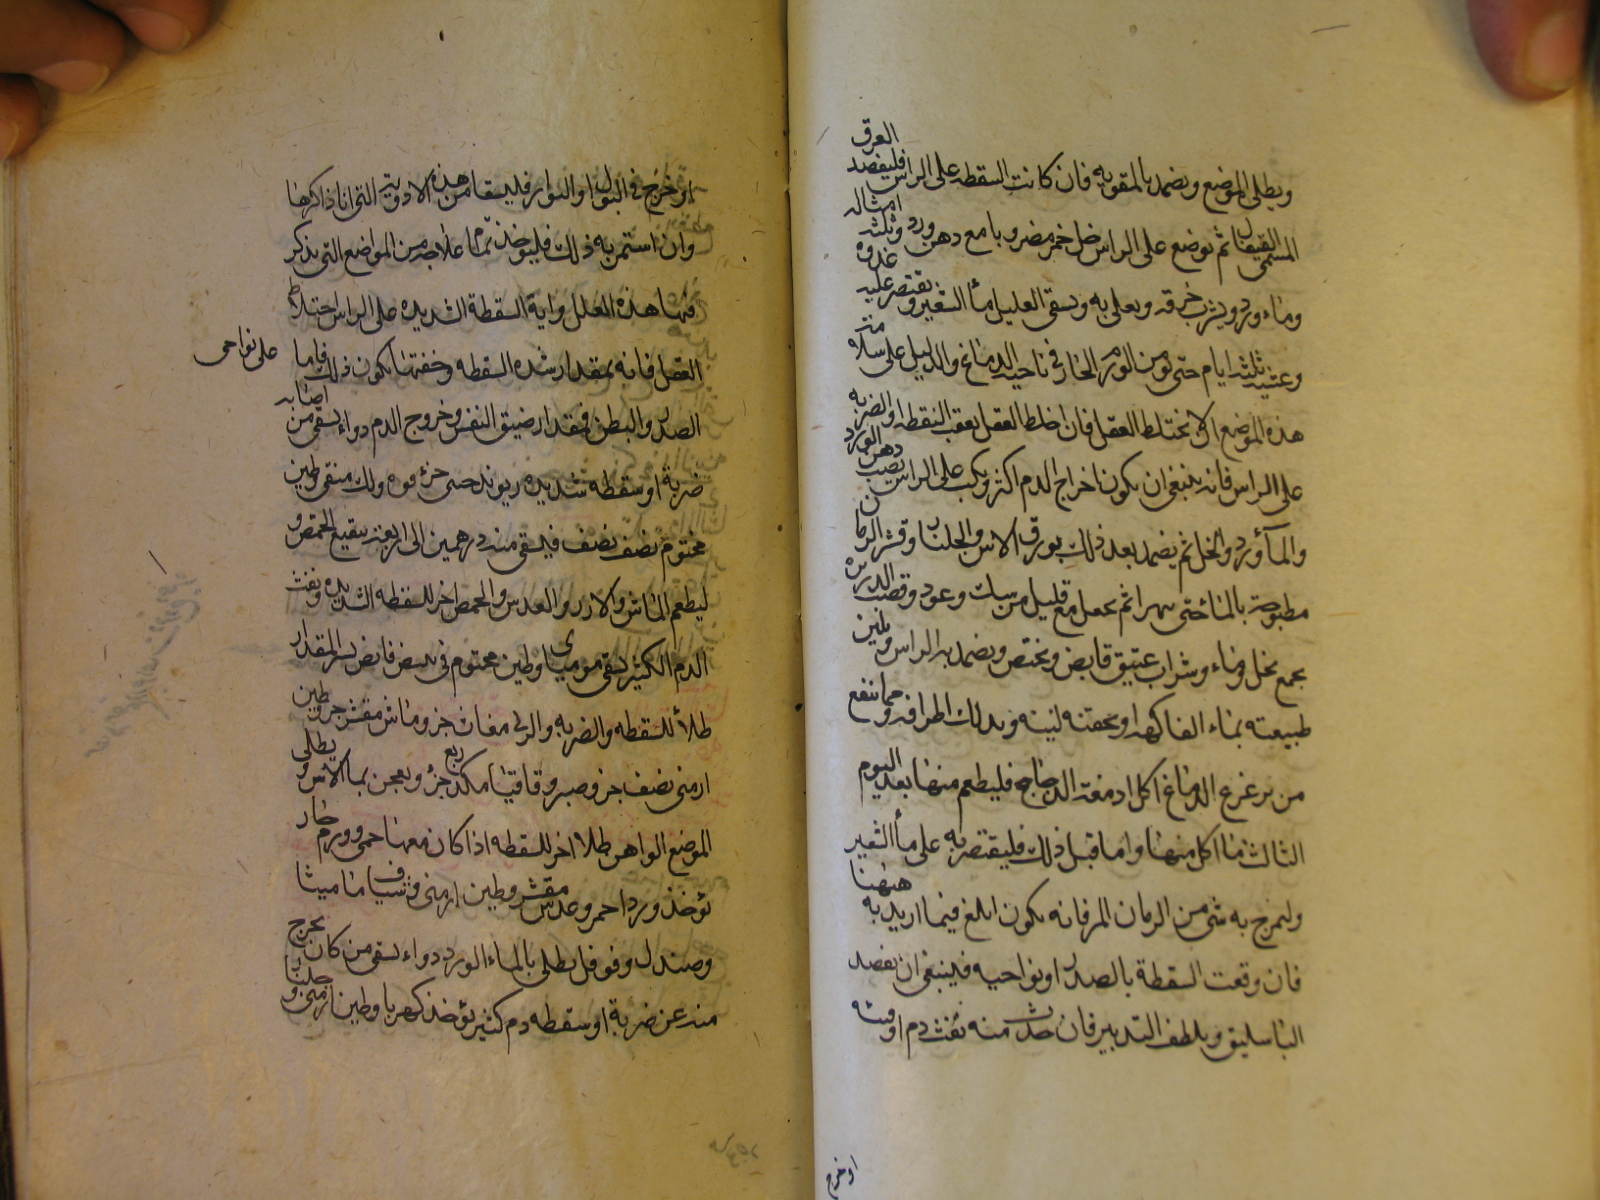 ويطلى الموضع ويضمد بالمقويه فان كانت السقطه على الراس فليفصد العرق
المسمى القيفال ثم توضع على الراس خل خمر مضروبا مع دهن ورد وثلثه امثاله
وماء ورد ويشرب خرقه ويعلى به ويسقى العليل ماء الشعير ويقتصر عليه غدوه
وعشيه ثلثه ايام حتى يومن الورم الحار فى ناحيه الدماغ والدليل على سلامته
هذه الموضع الا يختلط العقل فان اختلط العقل بعقب السقطه او الضربه
على الراس فانه ينبغى ان يكون اخراج الدم اكثر ويكب على الراس نصيب دهن الورد
والمآورد والخل ثم يضمد بعد ذلك بورق الاس والجلنار وقشر الرمان
مطبوخة بالماء حتى يهرا ثم يجعل مع قليل من سك وعود وقصب الذريره
يجمع بخل وماء وشراب عتيق قابض ويضمد به الراس ويلين
طبيعته بماء الفاكهه او بحقنه لينه ويدلك اطرافه ومما ينفع
من تزعزع الدماغ اكل ادمغه الدجاجه فليطعم منها بعد اليوم
الثالث ما اكل منها واما قبل ذلك فليقتصر به على مأ الشعير
وليمزج به شى من الرمان المر فانه يكون ابلغ فيما اريد به ههنا
فان وقعت السقطة بالصدر او نواحيه فينبغى ان يفصد
الباسليق ويلطف التدبير فان حدث منه نفث دم او قيئه
او خرج
او خرج فى البول او البراز فليسقا من هذه الادويه التى انا ذاكرها
وان استمر به ذلك فليوخذ ثم ما علاجه من المواضع التى يذكر
فيها هذه العلل واية السقطة الشديده على الراس اختلاط
العقل فانه بمقدار شده السقطه وخفتها يكون ذلك فاما على نواحى
الصدر والبطن فبمقدار ضيق النفس وخروج الدم دواء يسقى من اصابه
ضربة او سقطه شديده ريوند حتى جزء فوه ولك منقى وطين
مختوم نصف نصف فيسقى منه درهمين الى اربعه بنقيع الحمص و
ليطعم الماش والارز والعدس والحمص اخر للسقطه الشديده ونفث
الدم الكثير يسقى موميآى وطين مختوم فى بيض قابض المقدار
طلأ للسقطه والضربه والوثى مغاث جز وماش مقشر جز وطين
ارمنى نصف جز وصبر وقاقيا مكد ربع جزء ويعجن بما الاس و يطلى
الموضع الواهن طلا اخر للسقطه اذا كان معها حمى وورم حار
يوخذ ورد احمر وعدس مقشر وطين ارمنى وشياف ماميثا
وصندل وفوفل يطلى بالماء الورد دواء يسقى من كان يخرج
منه عن ضربة او سقطه دم كثير يؤخذ كهربا وطين ارمنى و جلنار